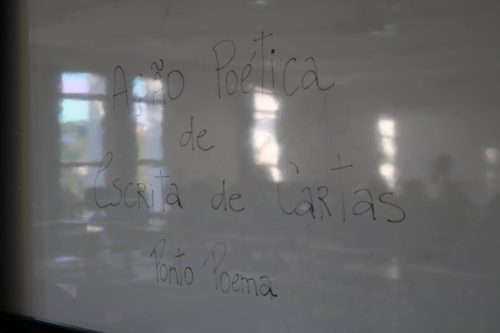 Ação Poética
de
Escrita de Cartas
Ponto Poema